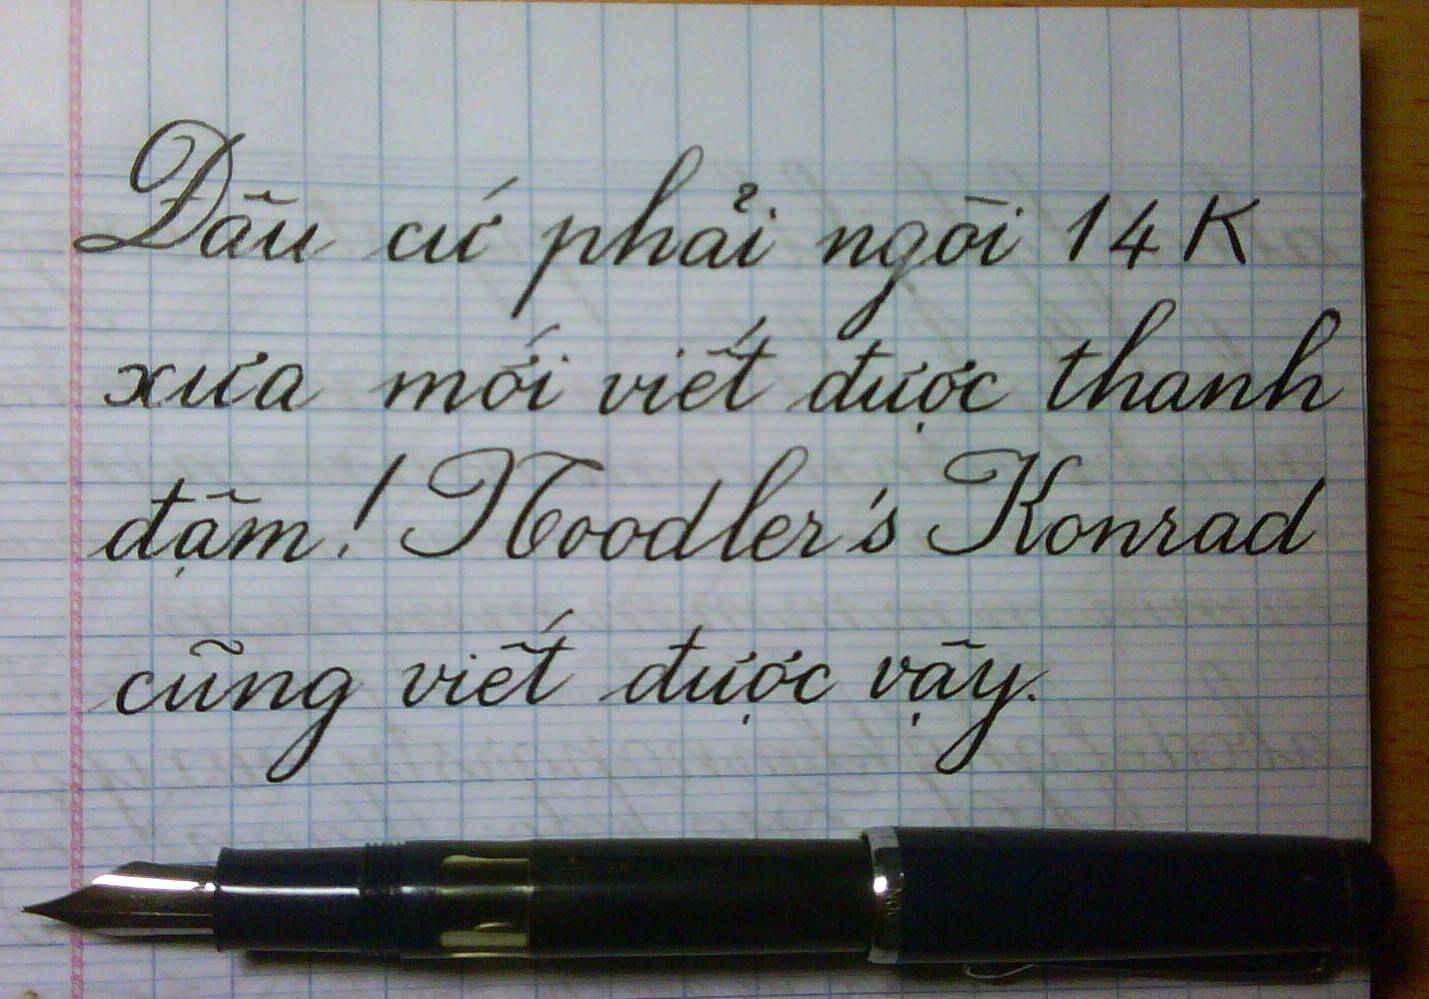 Đâu cứ phải ngòi 14K
xưa mới viết được thanh
đậm! Noodler's Konrad
cũng viết được vậy.